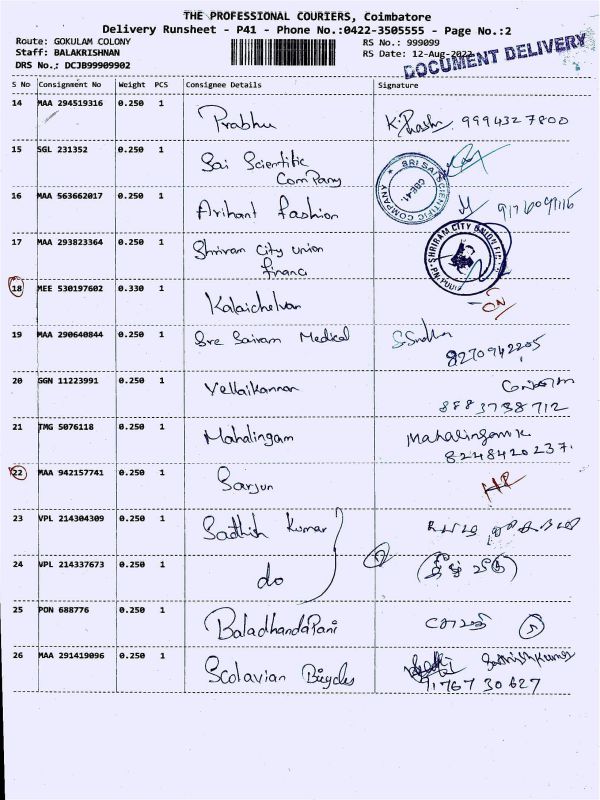 THE PROFESSIONAL COURIERS, Coimbatore
Delivery Runsheet - P41 - Phone No.:0422-3505555 - Page No.:2
Route: GOKULAM COLONY RS No.: 999099
Staff: BALAKRISHNAN RS Date: 12-Aug-2022
DRS No.: DCJB99909902 DOCUMENT DELIVERY
S No Consignment No Weight PCS Consignee Details Signature
14 MAA 294519316 0.250 1 Prabhu 9994327800
15 SGL 231352 0.250 1 Sai Scientific
Company
SRI SAI SCIENTIFIC COMPANY CBE-41.
16 MAA 563662017 0.250 1 Arihant fashion
17 MAA 293823364 0.250 1 Shriram City Union
financi
SHRIRAM CITY UNION
18 MEE 530197602 0.330 1 Kalaichelvan
19 MAA 290640844 0.250 1 Sre Sairam Medical
8270942205
20 GGN 11223991 0.250 1 Vellaikannan
8883738712
21 TMG 5076118 0.250 1 Mahalingam Mahalingam K
8248420237.
22 MAA 942157741 0.250 1 Sarjun
23 VPL 214304309 0.250 1 Sadhish Kumar
24 VPL 214337673 0.250 1 do
25 PON 688776 0.250 1 BaladhandaPani
26 MAA 291419096 0.250 1 Scolavian Bicycles Sathishkumar
91767 30627